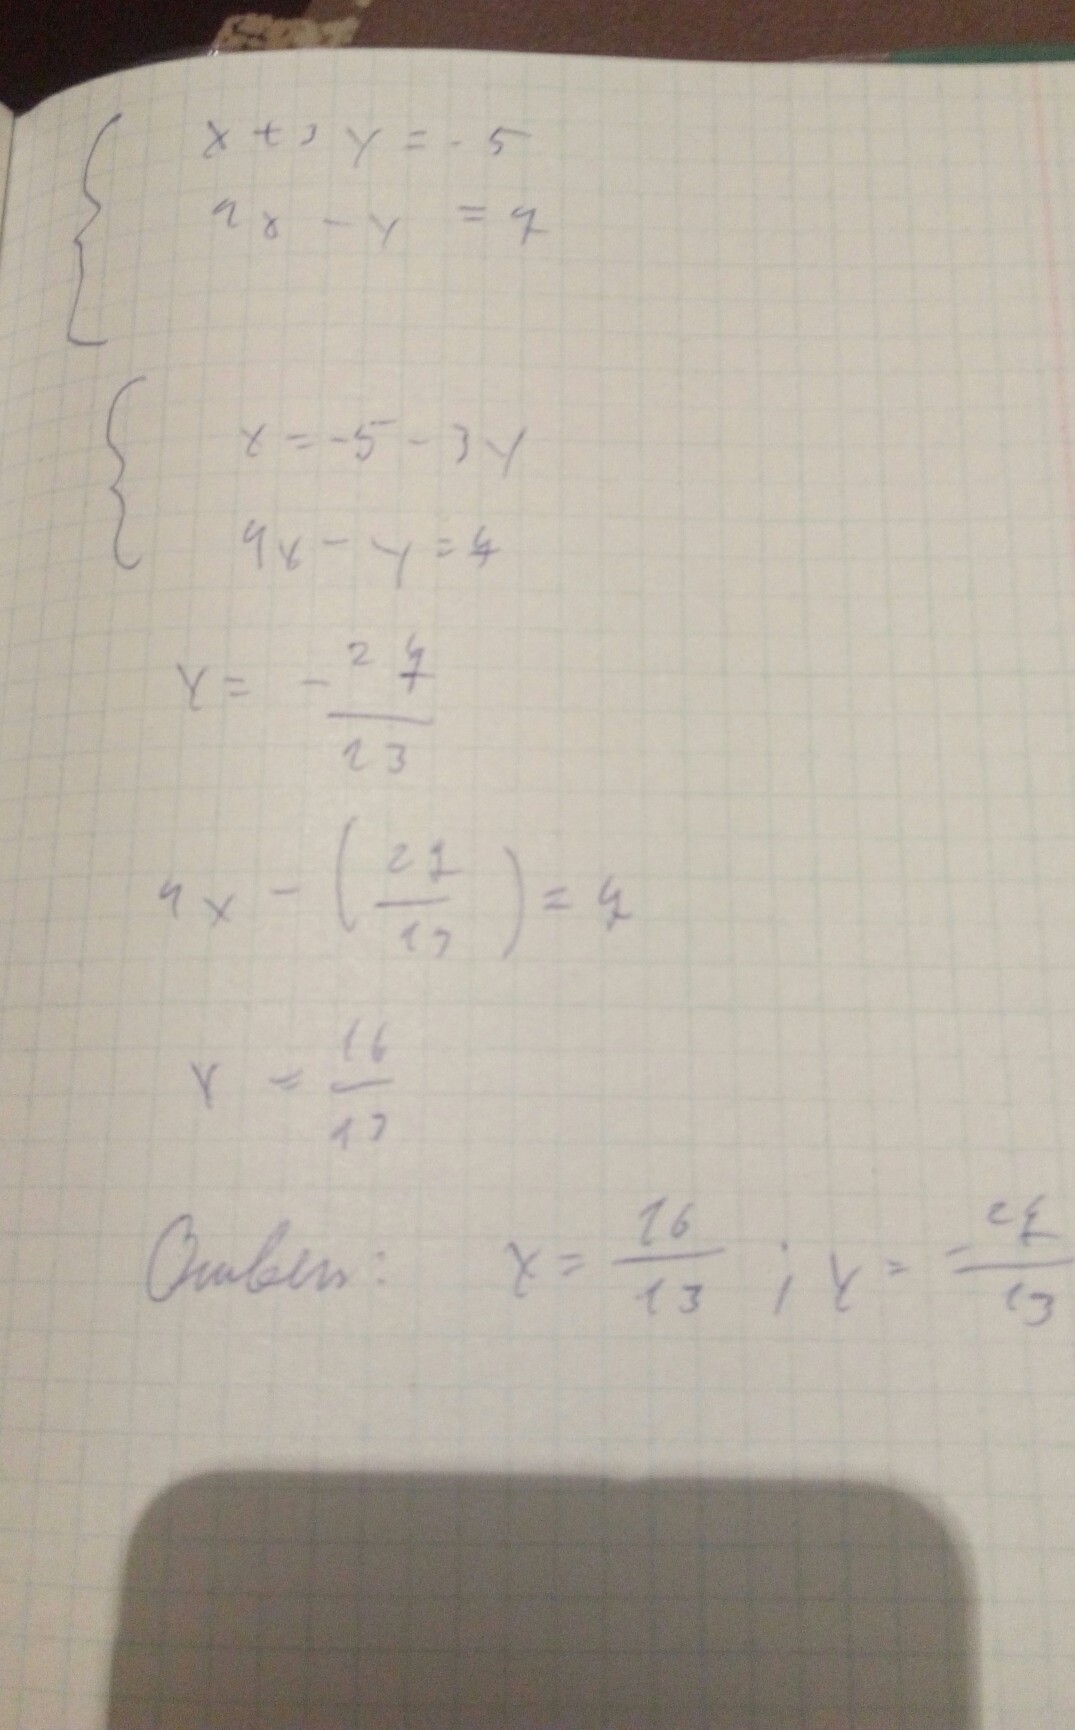 x + 3y = -5
4x - y = 7
x = -5 - 3y
4x - y = 7
y = - 27/13
4x - (27/13) = 7
x = 16/13
Ответ: x = 16/13 ; y = -27/13